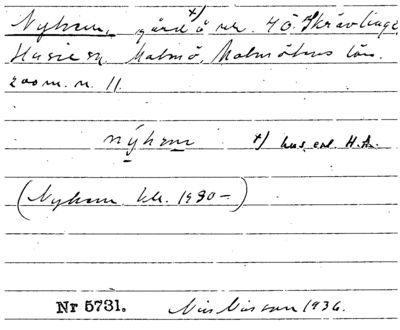 Nyhem, gård x) å nr. 40 Skrävlinge
Husie sn Malmö, Malmöhus län.
zoom. n. 11.
nyhem x) hus, enl. H.A.
(Nyhem kk. 1930–)
Nr 5731. Nils Nilsson 1936.